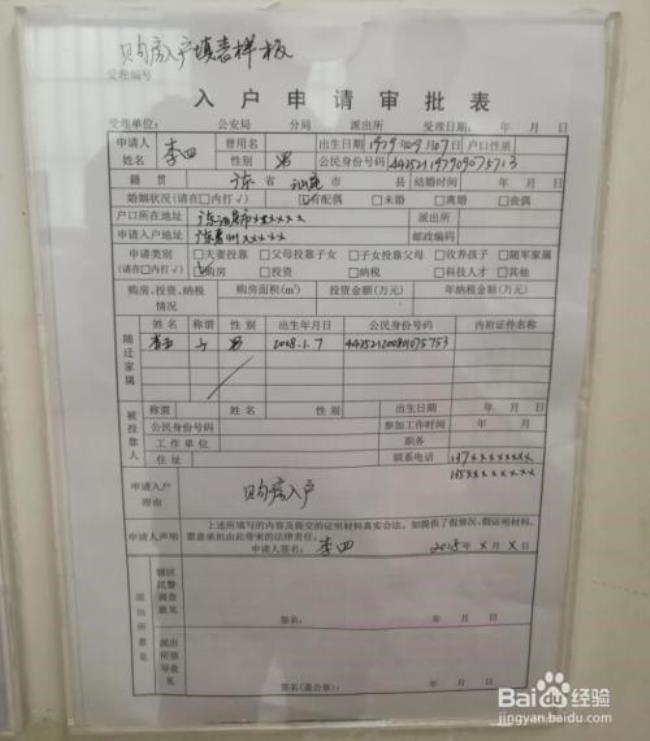 购房入户填表样板
受理编号
入户申请审批表
受理单位: 公安局 分局 派出所 受理日期: 年 月 日
申请人姓名 李四 曾用名 出生日期 1979年09月07日 户口性质
性别 男 公民身份号码 442521197909075713
籍贯 广东省 汕尾市 县 结婚时间 年 月 日
婚姻状况(请在□内打√) □有配偶 □未婚 □离婚 □丧偶
户口所在地址 广东汕尾市××××× 派出所
申请入户地址 广东惠州××××× 邮政编码
申请类别 □夫妻投靠 □父母投靠子女 □子女投靠父母 □收养孩子 □随军家属
(请在□内打√) ☑购房 □投资 □纳税 □科技人才 □其他
购房、投资、纳税情况 购房面积(m²) 投资金额(万元) 年纳税金额(万元)
随迁家属 姓名 称谓 性别 出生年月日 公民身份号码 内附证件名称
李五 子 男 2008.1.7 442521200801075753
被投靠人 称谓 姓名 性别 出生日期 年 月 日
公民身份号码 参加工作时间 年 月
工作单位 职务
住址 联系电话 137××××××××
135××××××××
申请入户理由 购房入户
申请人声明 上述所填写的内容及提交的证明材料真实合法,如提供了假情况、假证明材料,
愿意承担由此带来的法律责任。
申请人签名: 李四 2015年×月×日
派出所意见 辖区民警调查意见
签名: 年 月 日
派出所领导意见
签名(盖公章): 年 月 日
Baidu经验
jingyan.baidu.com